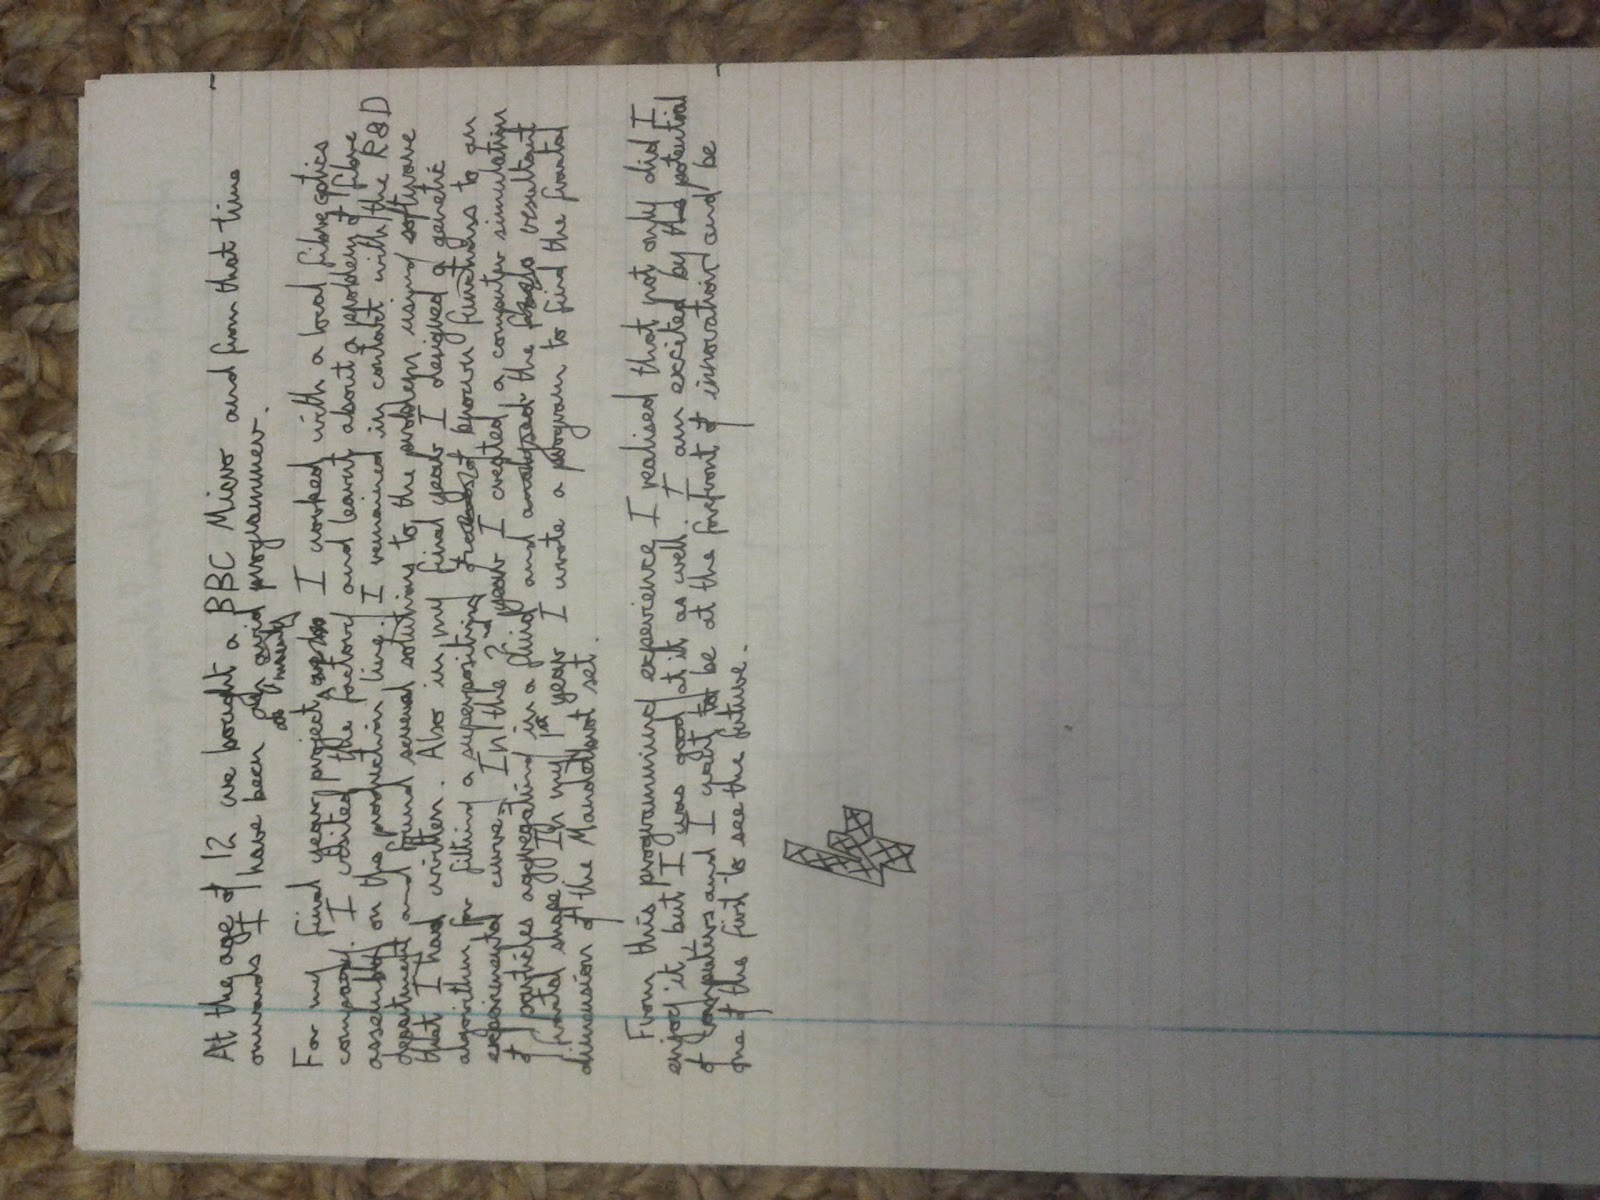 At the age of 12 we bought a BBC Micro and from that time
onwards I have been an avid programmer.
For my final year project I worked with a local fibre optics
company. I visited the factory and learnt about a problem of fibre
assembly on the production line. I remained in contact with the R&D
department and found several solutions to the problem using software
that I had written. Also in my final year I designed a genetic
algorithm for fitting a superposition of known functions to an
experimental curve. In the 2nd year I created a computer simulation
of particles aggregating in a fluid and analysed the resultant
fractal shape. In my 1st year I wrote a program to find the fractal
dimension of the Mandelbrot set.
From this programming experience I realised that not only did I
enjoy it, but I was good at it as well. I am excited by the potential
of computers and I want to be at the forefront of innovation and be
one of the first to see the future.